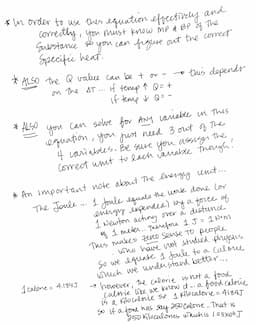 * In order to use this equation effectively and
correctly, you must know MP & BP of the
substance so you can figure out the correct
specific heat.
* ALSO the Q value can be + or - → this depends
on the ΔT... if temp ↑ Q = +
if temp ↓ Q = -
* ALSO you can solve for ANY variable in this
equation, you just need 3 out of the
4 variables. Be sure you assign the
correct unit to each variable though!
* An important note about the energy unit...
The Joule... 1 joule equals the work done (or
energy expended) by a force of
1 Newton acting over a distance
of 1 meter. Therefore 1 J = 1 N·m
This makes zero sense to people
who have not studied physics
so we equate 1 joule to a calorie
which we understand better...
1 calorie = 4.184J → however, the calorie is not a food
calorie like we know it... a food calorie
is a kilocalorie so 1 kilocalorie = 4184J
so if a food has say 250 calorie. That is
250 kilocalories which is